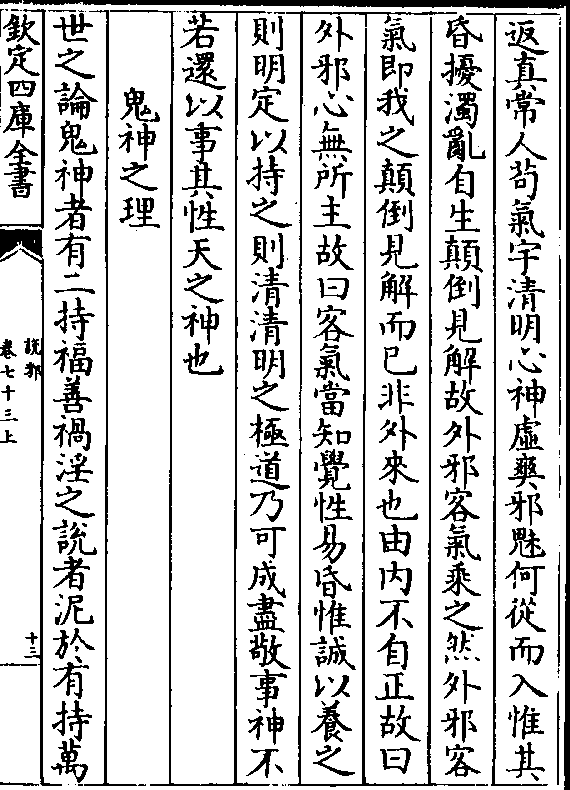 返真常人茍氣宇清明心神虛爽邪魅何從而入惟其
昏擾濁亂自生顛倒見解故外邪客氣乘之然外邪客
氣即我之顛倒見解而已非外來也由内不自正故曰
外邪心無所主故曰客氣當知覺性易昏惟誠以養之
則明定以持之則清清明之極道乃可成盡敬事神不
若還以事其性天之神也
鬼神之理
世之論鬼神者有二持福善禍淫之說者泥於有持萬
欽定四庫全書
說郛
卷七十三上
十三